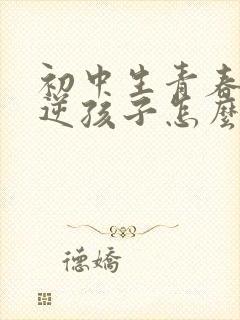 初中生青春
逆孩子怎麼
德嬌